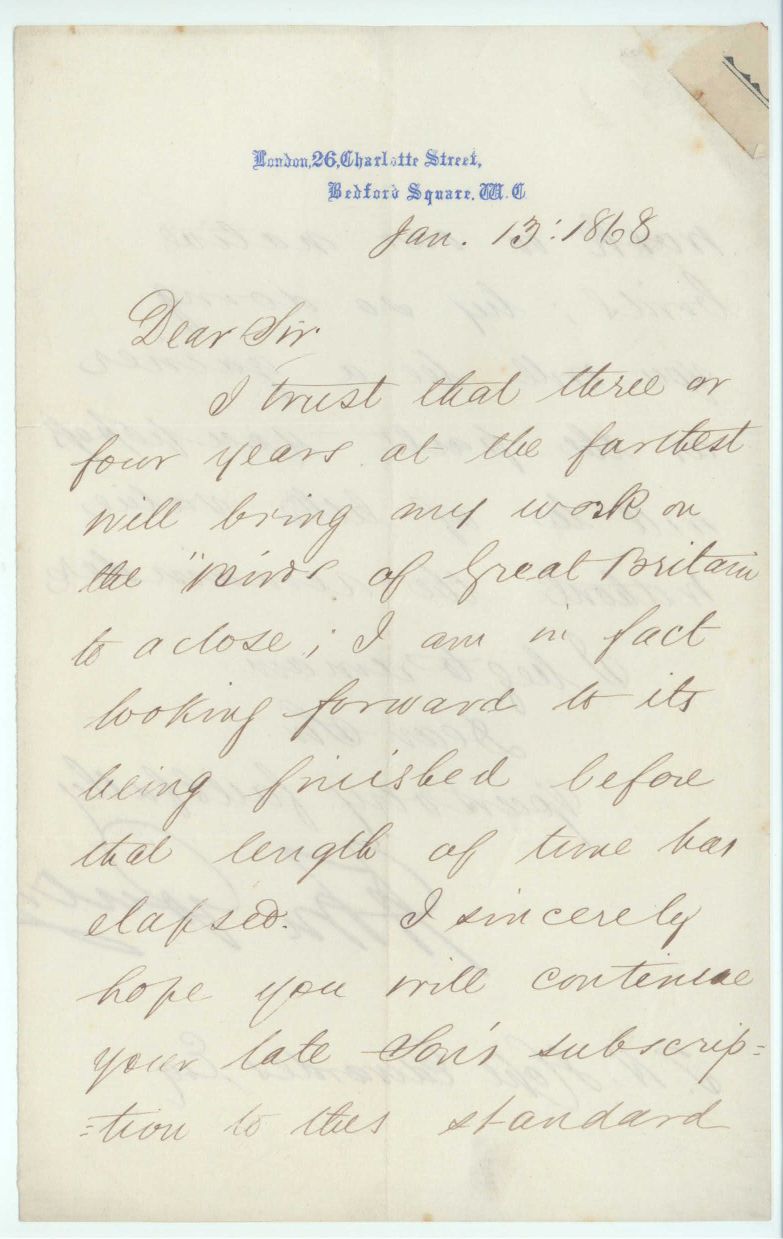 London, 26, Charlotte Street,
Bedford Square. W.C
Jan. 13: 1868
Dear Sir
I trust that three or
four years at the farthest
will bring my work on
the "Birds of Great Britain
to a close; I am in fact
looking forward to its
being finished before
that length of time has
elapsed. I sincerely
hope you will continue
your late Son's subscrip=
=tion to this standard